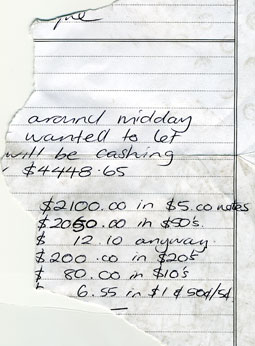 around midday
wanted to let
will be cashing
$4448.65
$2100.00 in $5.00 notes
$2050.00 in $50's
$ 12.10 anyway.
$200.00 in $20's
$ 80.00 in $10's
6.55 in $1 & 50¢/5¢